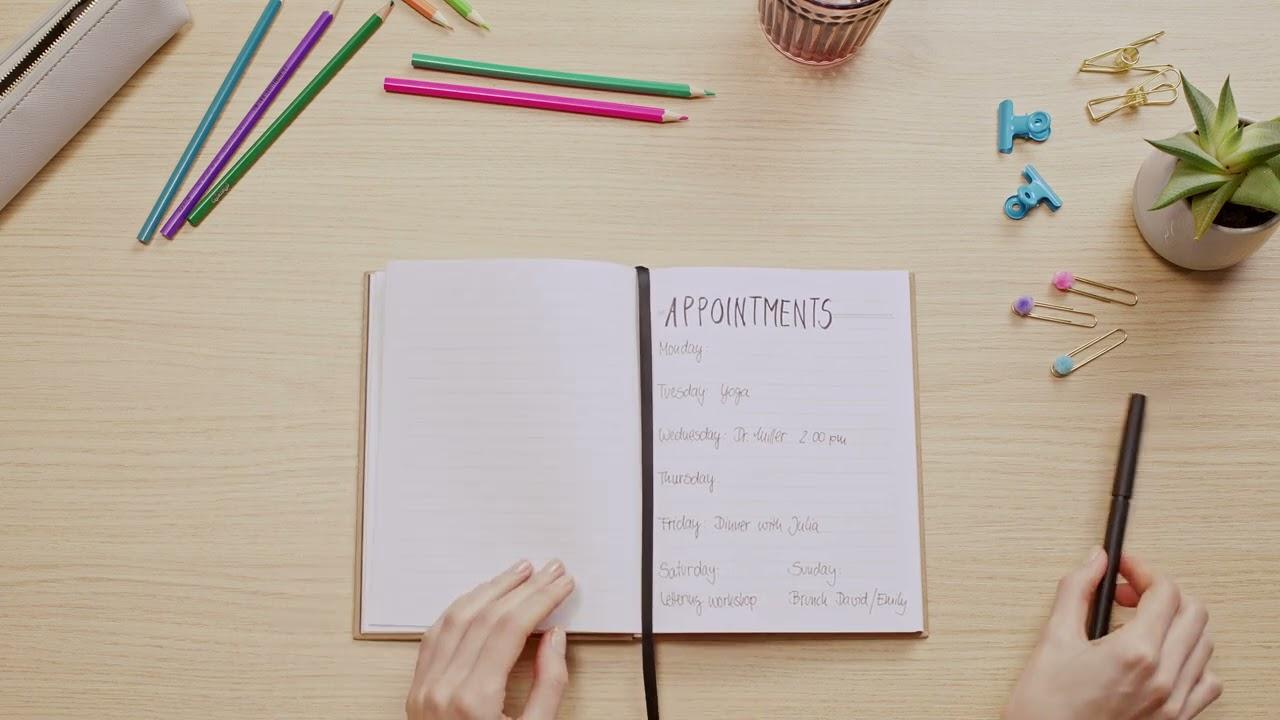 APPOINTMENTS
Monday:
Tuesday: Yoga
Wednesday: Dr. Miller 2.00 pm
Thursday
Friday: Dinner with Julia
Saturday: Sunday:
Lettering workshop Brunch David/Emily